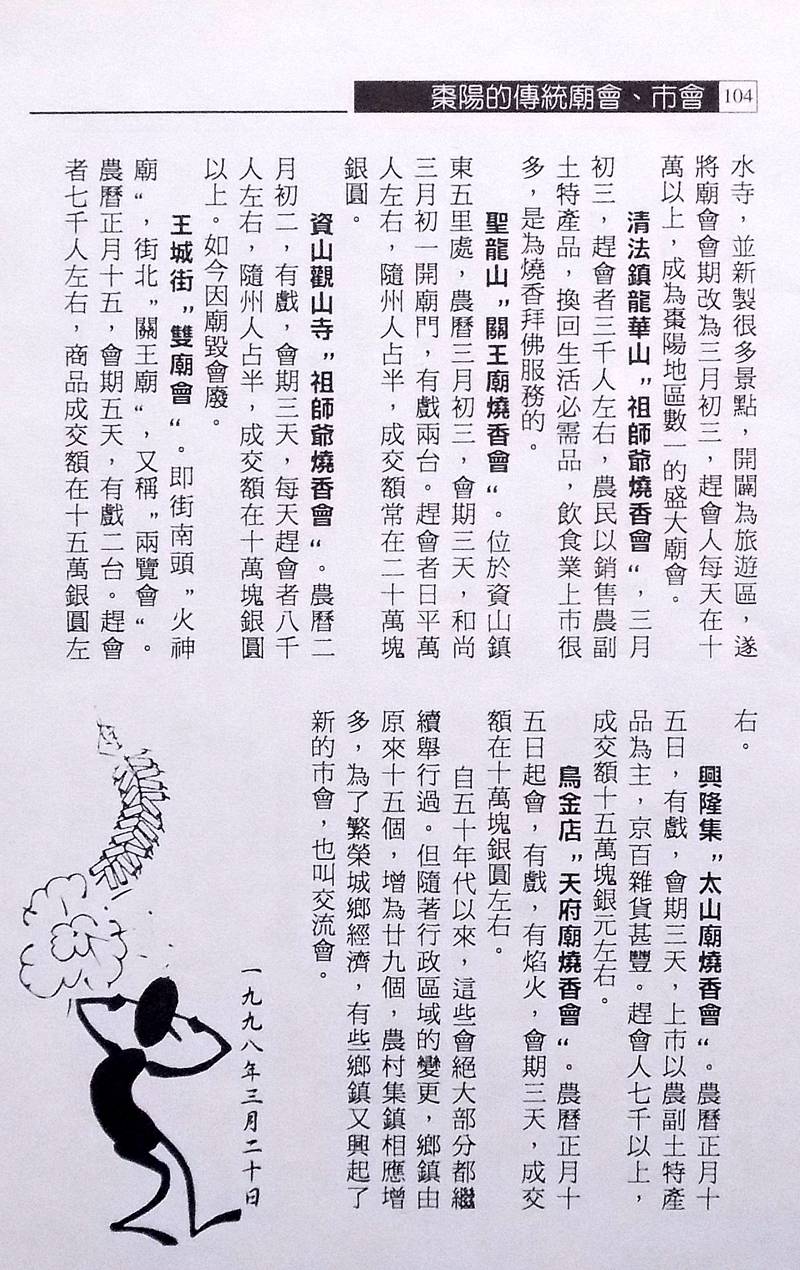 棗陽的傳統廟會、市會 104
水寺，並新製很多景點，開闢為旅遊區，遂
將廟會會期改為三月初三，趕會人每天在十
萬以上，成為棗陽地區數一的盛大廟會。
清法鎮龍華山〞祖師爺燒香會〝，三月
初三，趕會者三千人左右，農民以銷售農副
土特產品，換回生活必需品，飲食業上市很
多，是為燒香拜佛服務的。
聖龍山〞關王廟燒香會〝。位於資山鎮
東五里處，農曆三月初三，會期三天，和尚
三月初一開廟門，有戲兩台。趕會者日平萬
人左右，隨州人占半，成交額常在二十萬塊
銀圓。
資山觀山寺〞祖師爺燒香會〝。農曆二
月初二，有戲，會期三天，每天趕會者八千
人左右，隨州人占半，成交額在十萬塊銀圓
以上。如今因廟毀會廢。
王城街〞雙廟會〝。即街南頭〞火神
廟〝，街北〞關王廟〝，又稱〞兩覽會〝。
農曆正月十五，會期五天，有戲二台。趕會
者七千人左右，商品成交額在十五萬銀圓左
右。
興隆集〞太山廟燒香會〝。農曆正月十
五日，有戲，會期三天，上市以農副土特產
品為主，京百雜貨甚豐。趕會人七千以上，
成交額十五萬塊銀元左右。
鳥金店〞天府廟燒香會〝。農曆正月十
五日起會，有戲，有焰火，會期三天，成交
額在十萬塊銀圓左右。
自五十年代以來，這些會絕大部分都繼
續舉行過。但隨著行政區域的變更，鄉鎮由
原來十五個，增為廿九個，農村集鎮相應增
多，為了繁榮城鄉經濟，有些鄉鎮又興起了
新的市會，也叫交流會。
一九九八年三月二十日